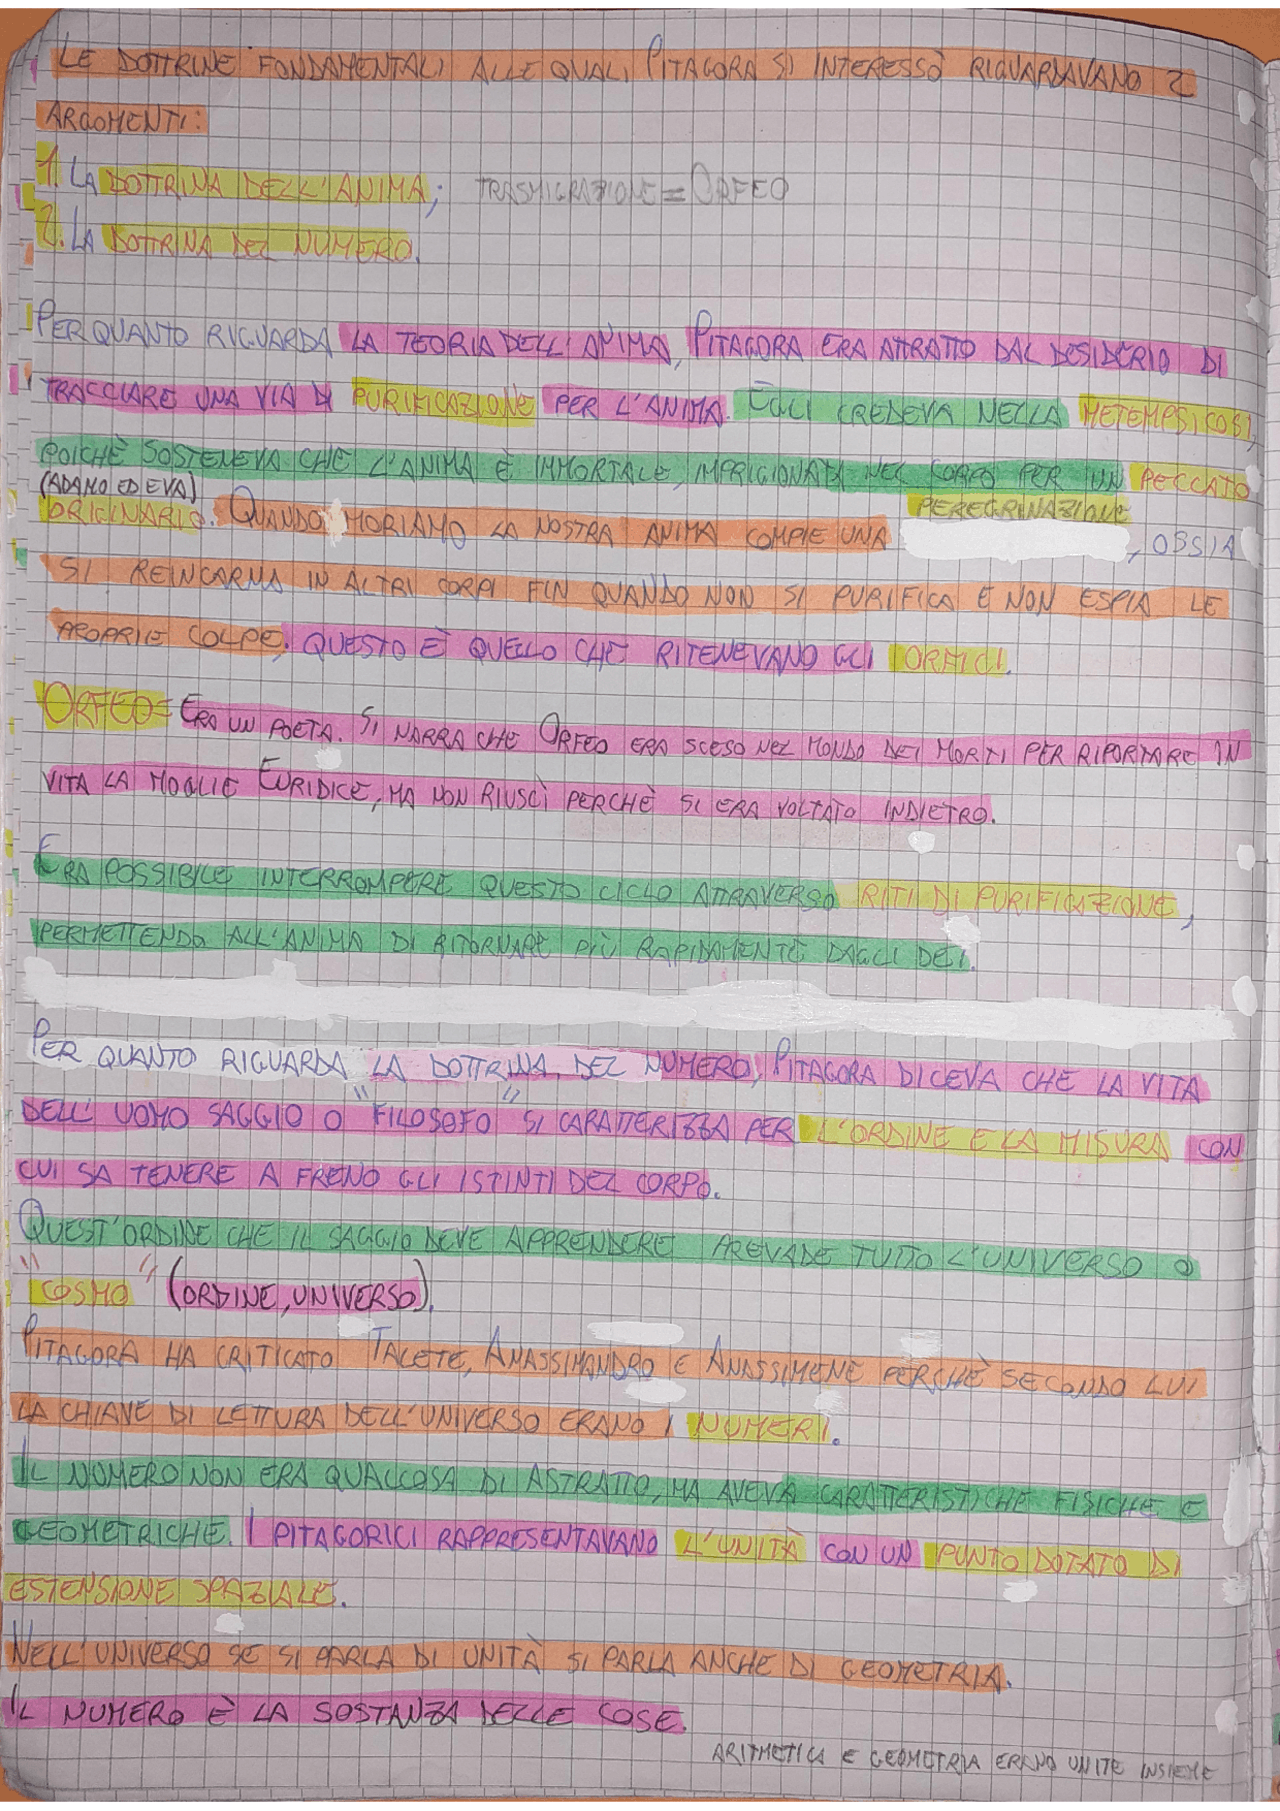 LE DOTTRINE FONDAMENTALI ALLE QUALI PITAGORA SI INTERESSÒ RIGUARDAVANO 2
ARGOMENTI:
1. LA DOTTRINA DELL'ANIMA; TRASMIGRAZIONE = ORFEO
2. LA DOTTRINA DEL NUMERO.
PER QUANTO RIGUARDA LA TEORIA DELL'ANIMA, PITAGORA ERA ATTRATTO DAL DESIDERIO DI
TRACCIARE UNA VIA DI PURIFICAZIONE PER L'ANIMA. EGLI CREDEVA NELLA METEMPSICOSI,
POICHÈ SOSTENEVA CHE L'ANIMA È IMMORTALE, IMPRIGIONATA NEL CORPO PER UN PECCATO
(ADAMO ED EVA)
ORIGINARIO. QUANDO MORIAMO LA NOSTRA ANIMA COMPIE UNA PEREGRINAZIONE, OSSIA
SI REINCARNA IN ALTRI CORPI FIN QUANDO NON SI PURIFICA E NON ESPIA LE
PROPRIE COLPE. QUESTO È QUELLO CHE RITENEVANO GLI ORFICI.
ORFEO = ERA UN POETA. SI NARRA CHE ORFEO ERA SCESO NEL MONDO DEI MORTI PER RIPORTARE IN
VITA LA MOGLIE EURIDICE, MA NON RIUSCÌ PERCHÈ SI ERA VOLTATO INDIETRO.
ERA POSSIBILE INTERROMPERE QUESTO CICLO ATTRAVERSO RITI DI PURIFICAZIONE,
PERMETTENDO ALL'ANIMA DI RITORNARE PIÙ RAPIDAMENTE DAGLI DEI.
PER QUANTO RIGUARDA LA DOTTRINA DEL NUMERO, PITAGORA DICEVA CHE LA VITA
DELL'UOMO SAGGIO O "FILOSOFO" SI CARATTERIZZA PER L'ORDINE E LA MISURA CON
CUI SA TENERE A FRENO GLI ISTINTI DEL CORPO.
QUEST'ORDINE CHE IL SAGGIO DEVE APPRENDERE PREVADE TUTTO L'UNIVERSO O
"COSMO" (ORDINE, UNIVERSO).
PITAGORA HA CRITICATO TALETE, ANASSIMANDRO E ANASSIMENE PERCHÈ SECONDO LUI
LA CHIAVE DI LETTURA DELL'UNIVERSO ERANO I NUMERI.
IL NUMERO NON ERA QUALCOSA DI ASTRATTO, MA AVEVA CARATTERISTICHE FISICHE E
GEOMETRICHE. I PITAGORICI RAPPRESENTAVANO L'UNITÀ CON UN PUNTO DOTATO DI
ESTENSIONE SPAZIALE.
NELL'UNIVERSO SE SI PARLA DI UNITÀ SI PARLA ANCHE DI GEOMETRIA.
IL NUMERO È LA SOSTANZA DELLE COSE.
ARITMETICA E GEOMETRIA ERANO UNITE INSIEME